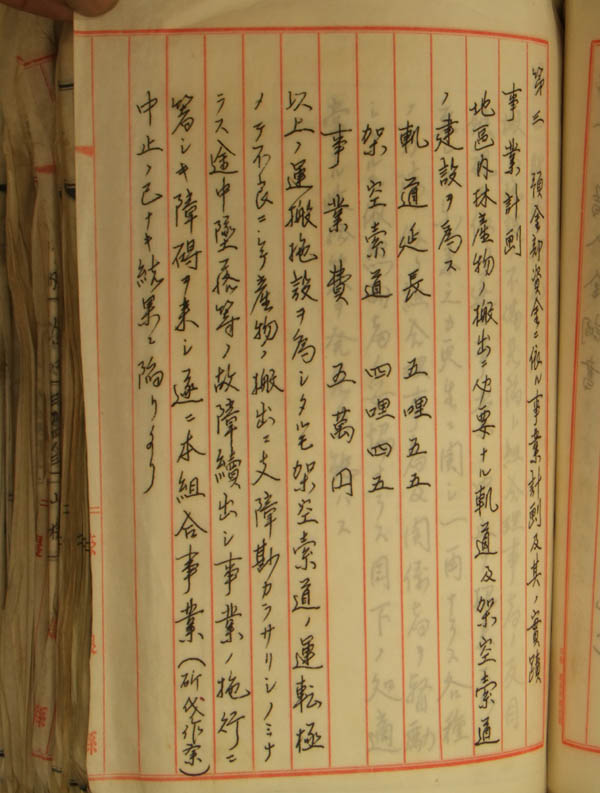 第三 預金部資金ニ依ル事業計劃及其ノ實蹟
事業計劃
地區内林産物ノ搬出ニ必要ナル軌道及架空索道
ノ建設ヲ為ス
軌道延長 五哩五五
架空索道 四哩四五
事業費 五萬円
以上ノ運搬施設ヲ為シタルモ架空索道ノ運転極
メテ不良ニシテ産物ノ搬出ニ支障尠カラサリシノミナ
ラス途中墜落等ノ故障續出シ事業ノ施行ニ
著シキ障碍ヲ来シ遂ニ本組合事業(斫伐作業)
中止ノ已ナキ結果ニ陥リタリ